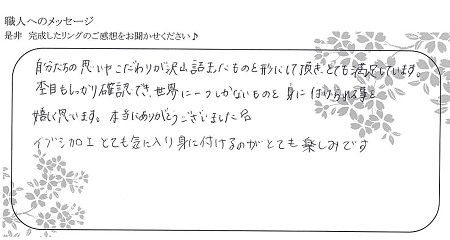 職人へのメッセージ
是非 完成したリングのご感想をお聞かせください♪
自分たちの思いやこだわりが沢山詰まったものを形にして頂き、とても満足しています。
杢目もしっかり確認でき、世界に一つしかないものを身に付けられる事を
嬉しく思います。本当にありがとうございました
イブシ加工とても気に入り身に付けるのがとても楽しみです